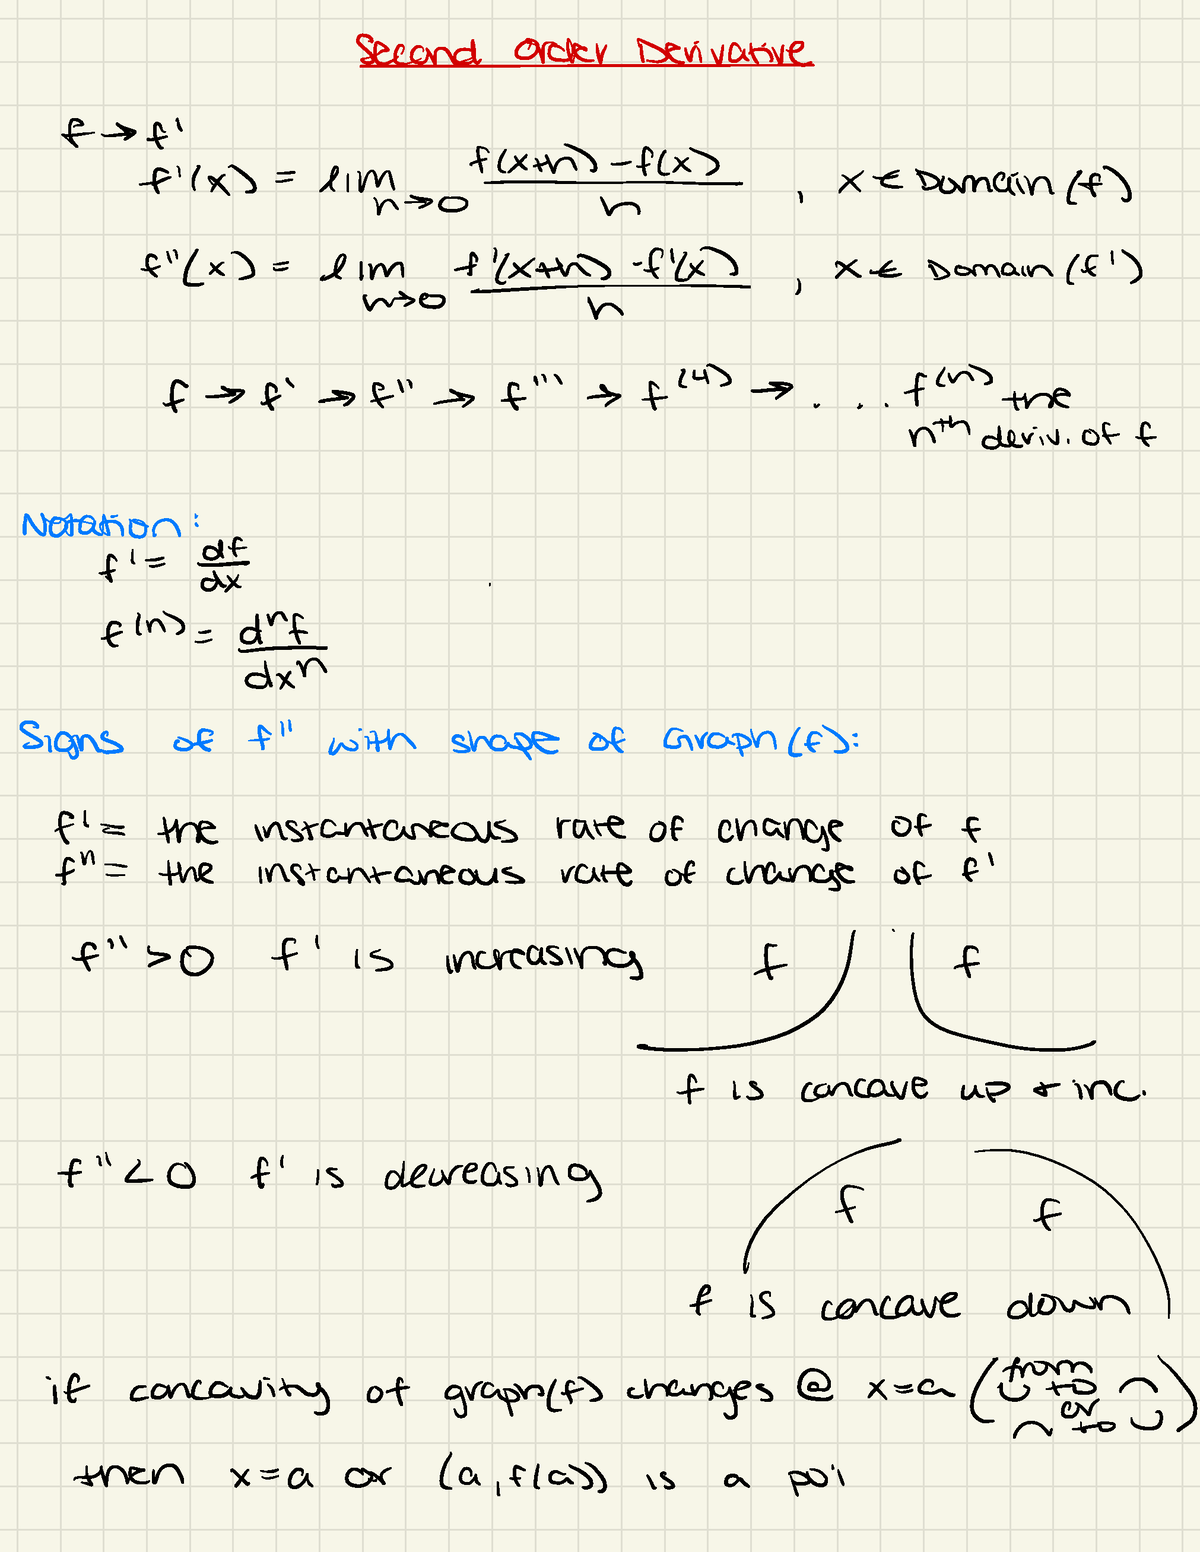 Second Order Derivative
f → f'
f'(x) = lim h→0 f(x+h) - f(x) / h , x ∈ Domain (f)
f''(x) = lim h→0 f'(x+h) - f'(x) / h , x ∈ Domain (f')
f → f' → f'' → f''' → f^(4) → . . . . f^(n) the
nth deriv. of f
Notation:
f' = df/dx
f^(n) = d^n f / dx^n
Signs of f'' with shape of Graph (f):
f' = the instantaneous rate of change of f
f'' = the instantaneous rate of change of f'
f'' > 0 f' is increasing f f
f is concave up + inc.
f'' < 0 f' is decreasing
f f
f is concave down
if concavity of graph(f) changes @ x=a (from ∪ to ∩ or ∩ to ∪)
then x=a or (a, f(a)) is a poi